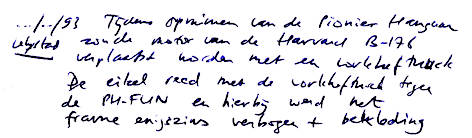 ../../93 Tijdens opruimen van de Pionier Hangaar
Lelystad zou de motor van de Harvard B-176
verplaatst worden met een vorkheftruck
De eikel reed met de vorkheftruck tegen
de PH-FUN en hierbij werd het
frame enigszins verbogen + bekleding